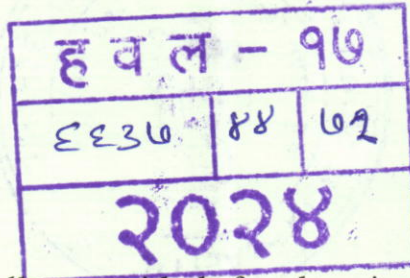 ह व ल - १७
६६३७ ४४ ७२
२०२४